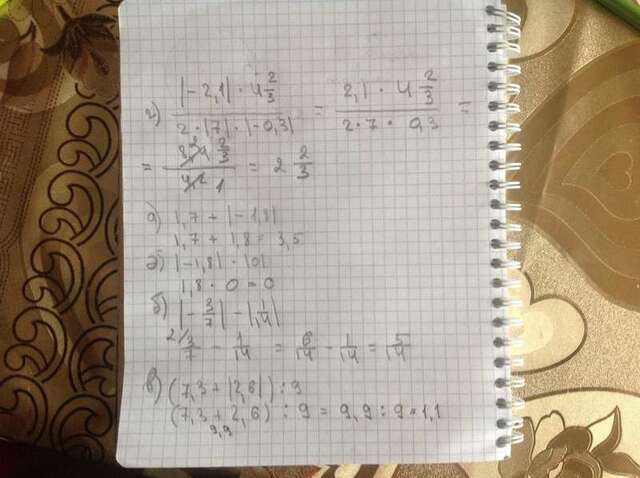 г) |-2,1| · 4 2/3 / 2 · |7| · |-0,3| = 2,1 · 4 2/3 / 2 · 7 · 0,3 =
= 2/3 / 1 = 2 2/3
а) 1,7 + |-1,8|
1,7 + 1,8 = 3,5
д) |-1,8| · |0|
1,8 · 0 = 0
б) |-3/7| - |1/14|
2/ 3/7 - 1/14 = 6/14 - 1/14 = 5/14
в) (7,3 + |2,6|) : 9
(7,3 + 2,6) : 9 = 9,9 : 9 = 1,1
9,9